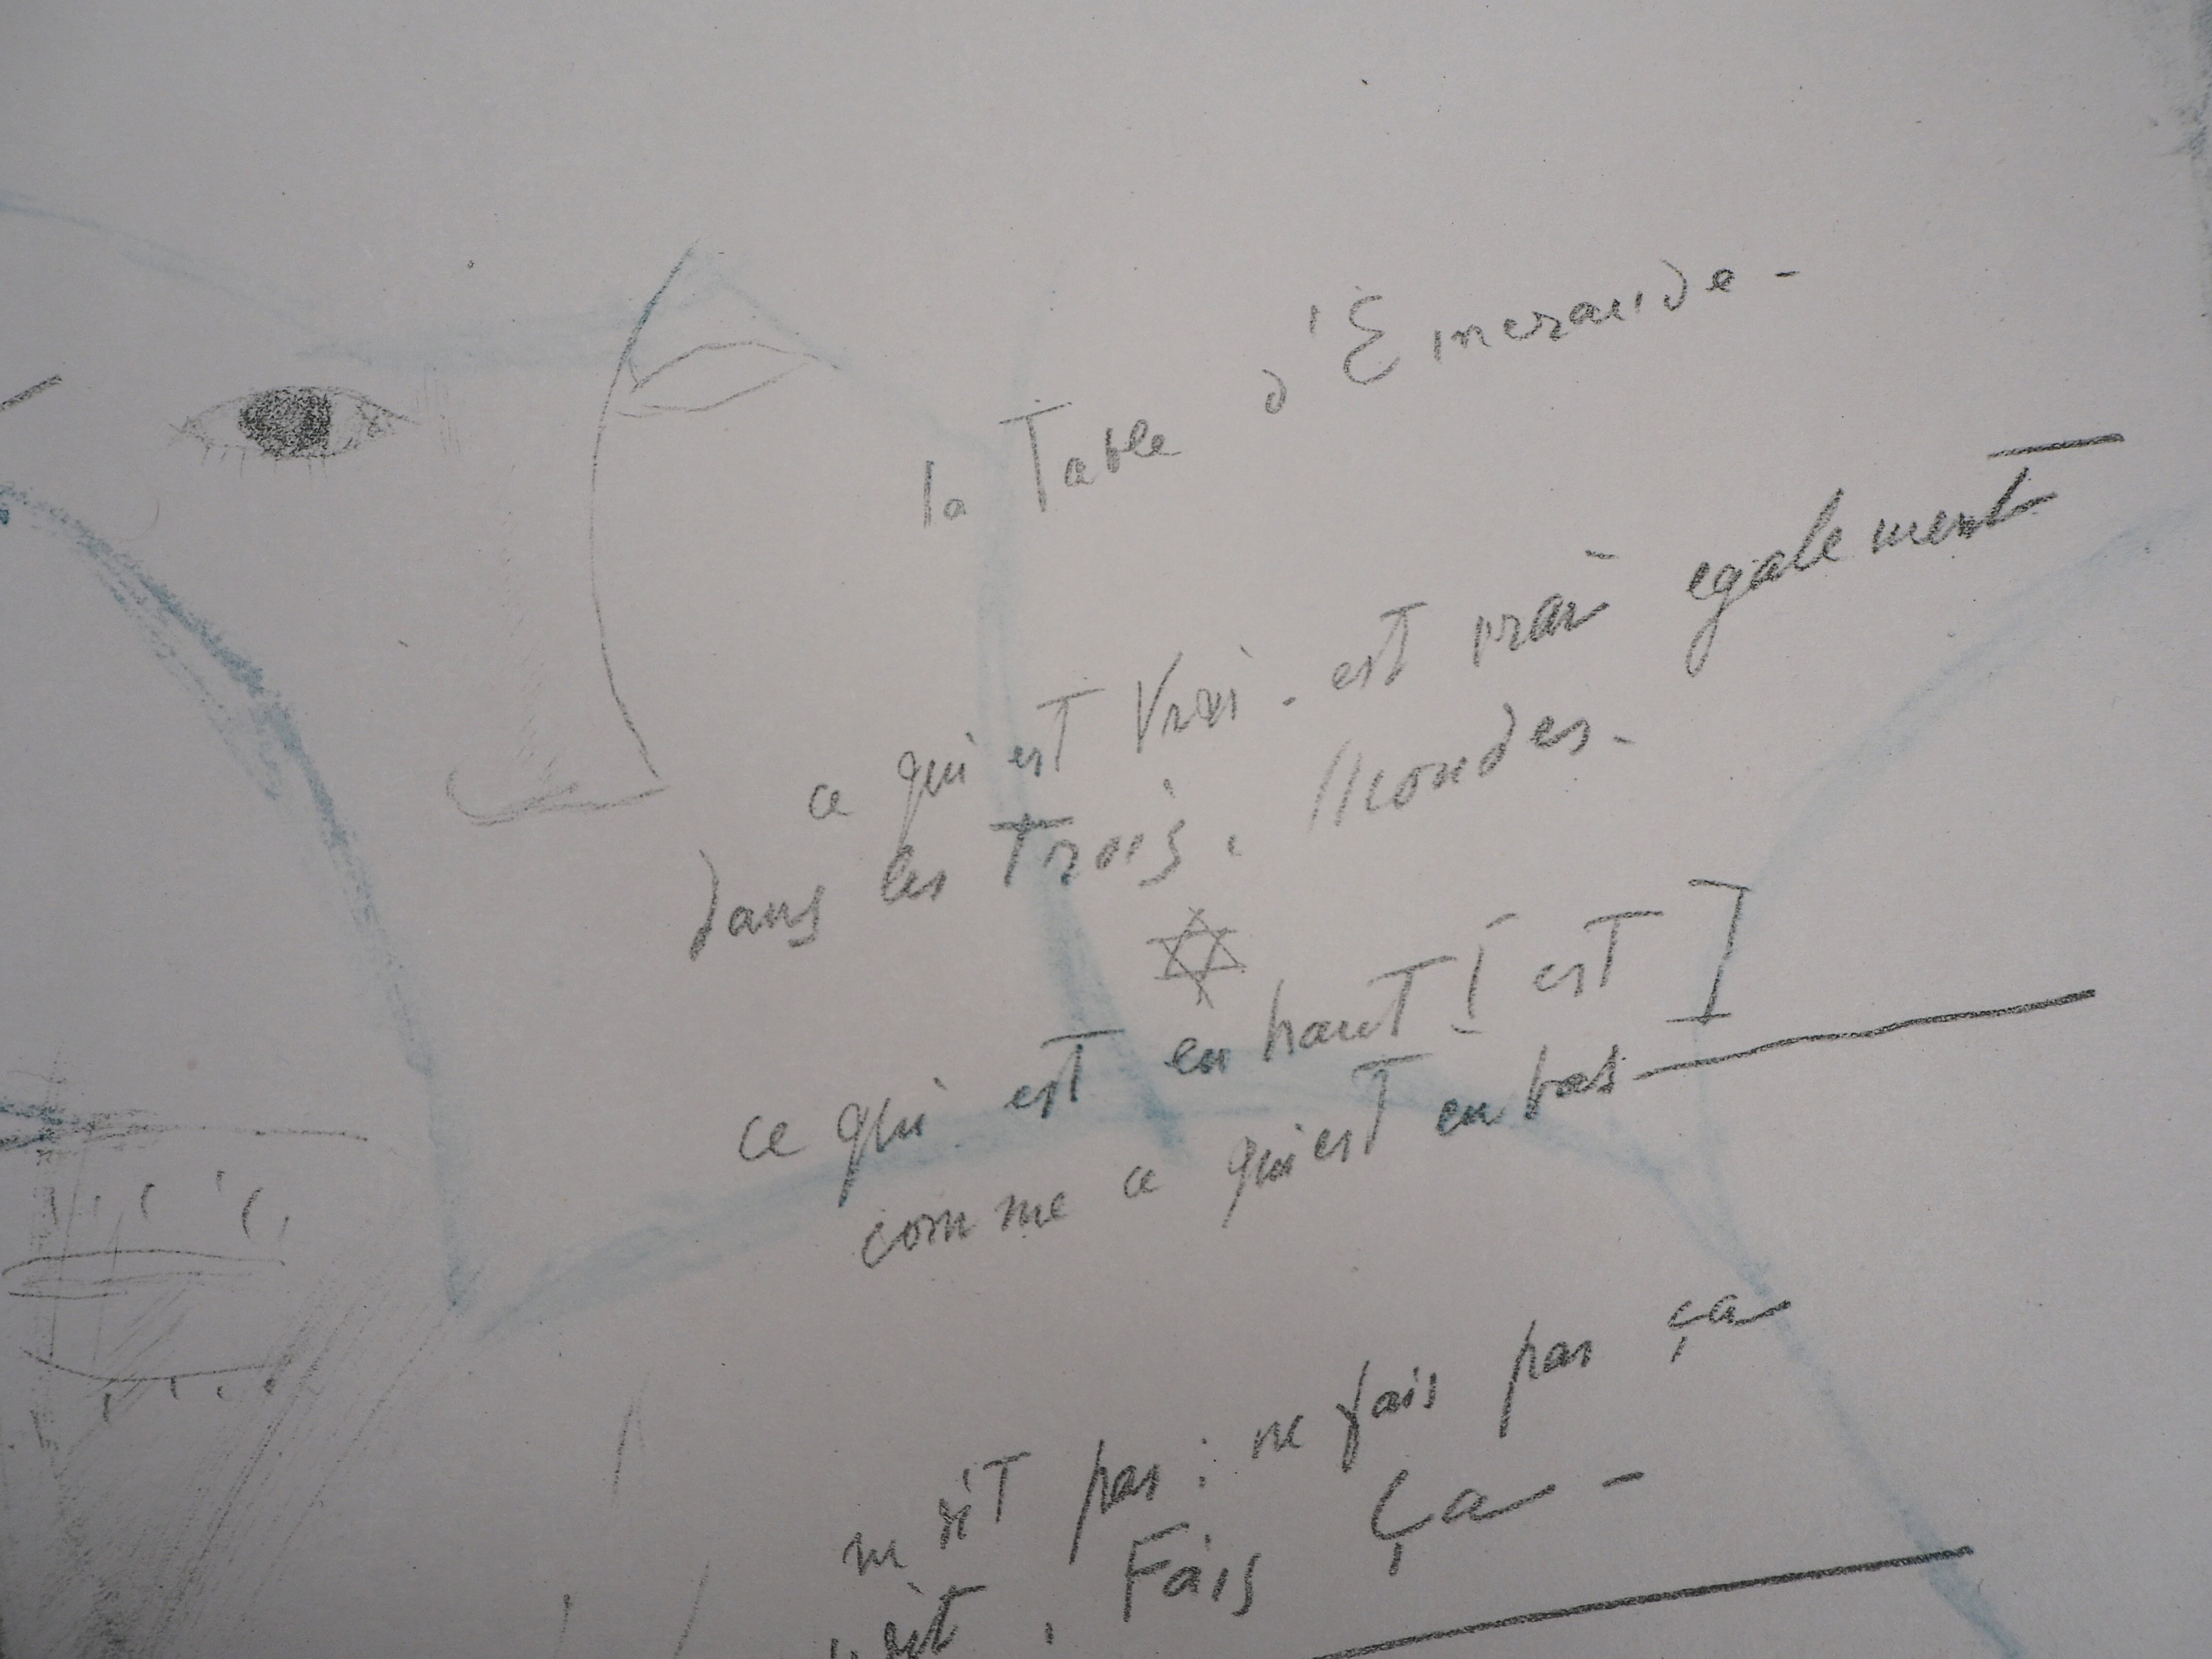 la Table d'Emeraude -
ce qui est Vrai - est vrai egalement
dans les Trois. Mondes -
ce qui est en haut [est]
comme ce qui est en bas
dit pas : ne fais pas ça
dit, Fais Ça -